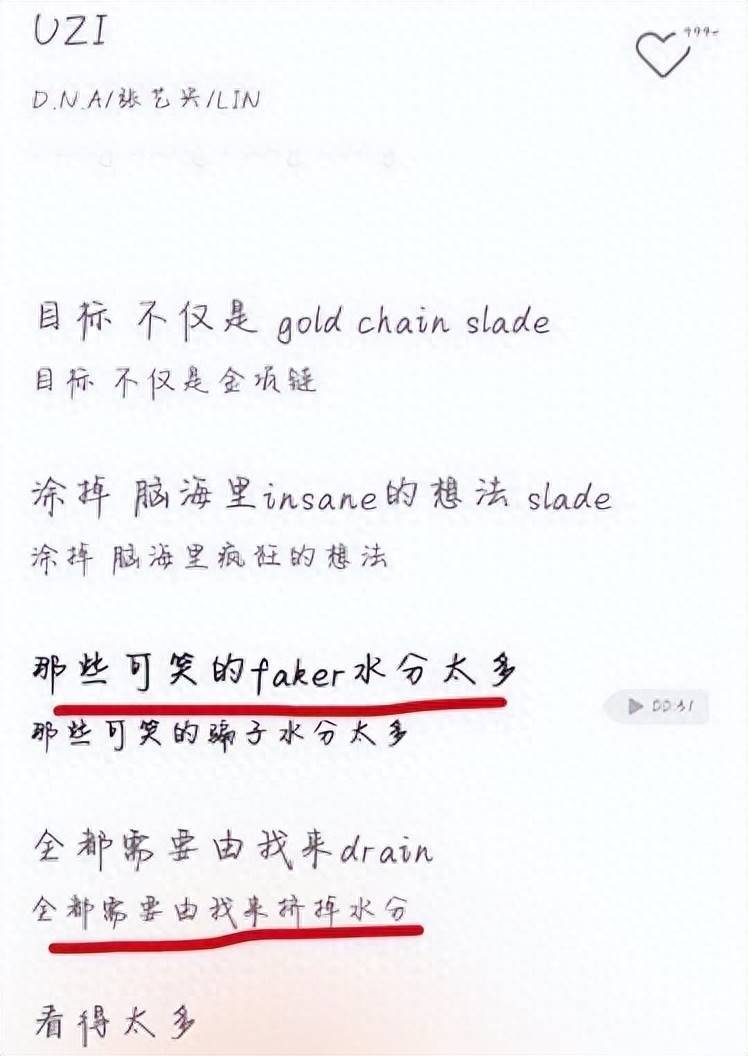 UZI
999+
D.N.A/张艺兴/LIN
目标 不仅是 gold chain slade
目标 不仅是金项链
涂掉 脑海里insane的想法 slade
涂掉 脑海里疯狂的想法
那些可笑的faker水分太多
00:31
那些可笑的骗子水分太多
全都需要由我来drain
全都需要由我来挤掉水分
看得太多